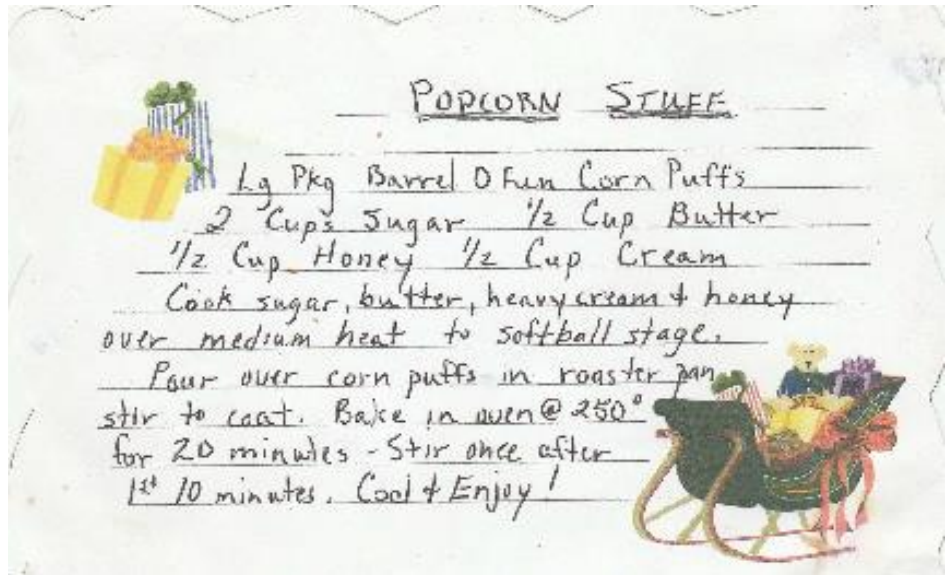 POPCORN STUFF
Lg Pkg Barrel O Fun Corn Puffs
2 Cups Sugar 1/2 Cup Butter
1/2 Cup Honey 1/2 Cup Cream
Cook sugar, butter, heavy cream & honey
over medium heat to softball stage.
Pour over corn puffs in roaster pan
stir to coat. Bake in oven @ 250°
for 20 minutes - Stir once after
1st 10 minutes. Cool & Enjoy!